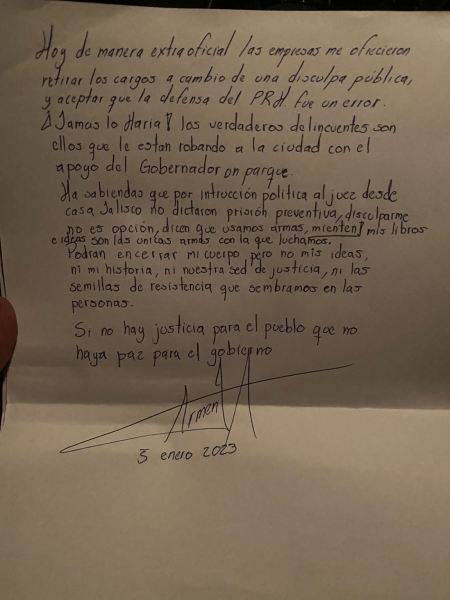 Hoy de manera extraoficial las empresas me ofrecieron
retirar los cargos a cambio de una disculpa pública,
y aceptar que la defensa del PRH. fue un error.
¡Jamas lo Haria! los verdaderos delincuentes son
ellos que le estan robando a la ciudad con el
apoyo del Gobernador un parque.
Ha sabiendas que por introcción politica al juez desde
casa Jalisco no dictaron prisión preventiva, disculparme
no es opción, dicen que usamos armas, mienten] mis libros
e ideas son las unicas armas con la que luchamos.
Podran encerrar mi cuerpo pero no mis ideas,
ni mi historia, ni nuestra sed de justicia, ni las
semillas de resistencia que sembramos en las
personas.
Si no hay justicia para el pueblo que no
haya paz para el gobierno
Armen
3 enero 2023